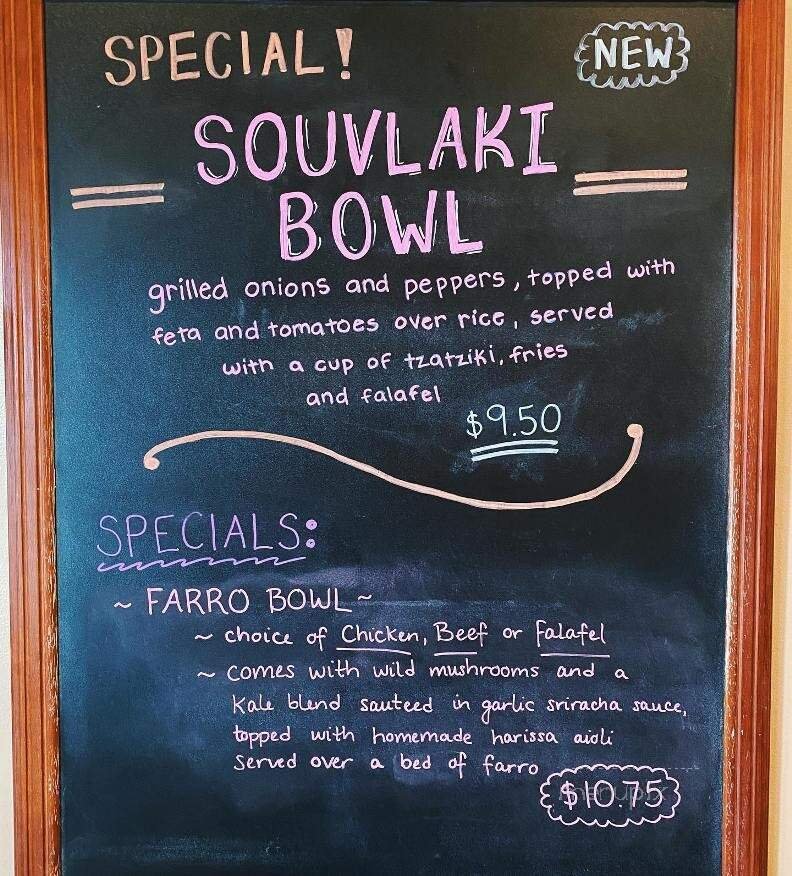 SPECIAL!
NEW
SOUVLAKI
BOWL
grilled onions and peppers, topped with
feta and tomatoes over rice, served
with a cup of tzatziki, fries
and falafel
$9.50
SPECIALS:
~ FARRO BOWL ~
~ choice of Chicken, Beef or Falafel
~ comes with wild mushrooms and a
Kale blend sauteed in garlic sriracha sauce,
topped with homemade harissa aioli
Served over a bed of farro
$10.75